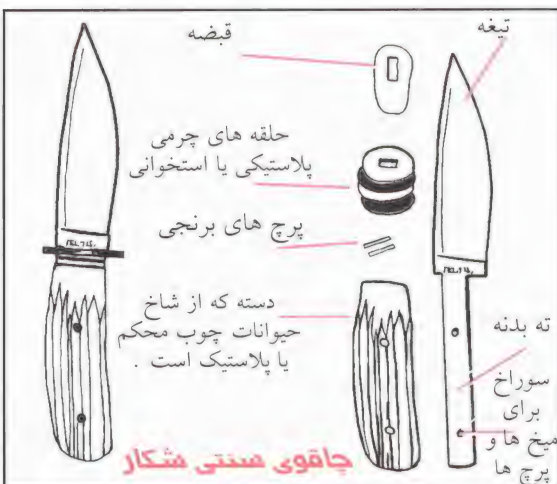 تیغه
قبضه
حلقه های چرمی
پلاستیکی یا استخوانی
پرچ های برنجی
دسته که از شاخ
حیوانات چوب محکم
یا پلاستیک است .
ته بدنه
سوراخ
برای
میخ ها و
پرچ ها
چاقوی سنتی شکار